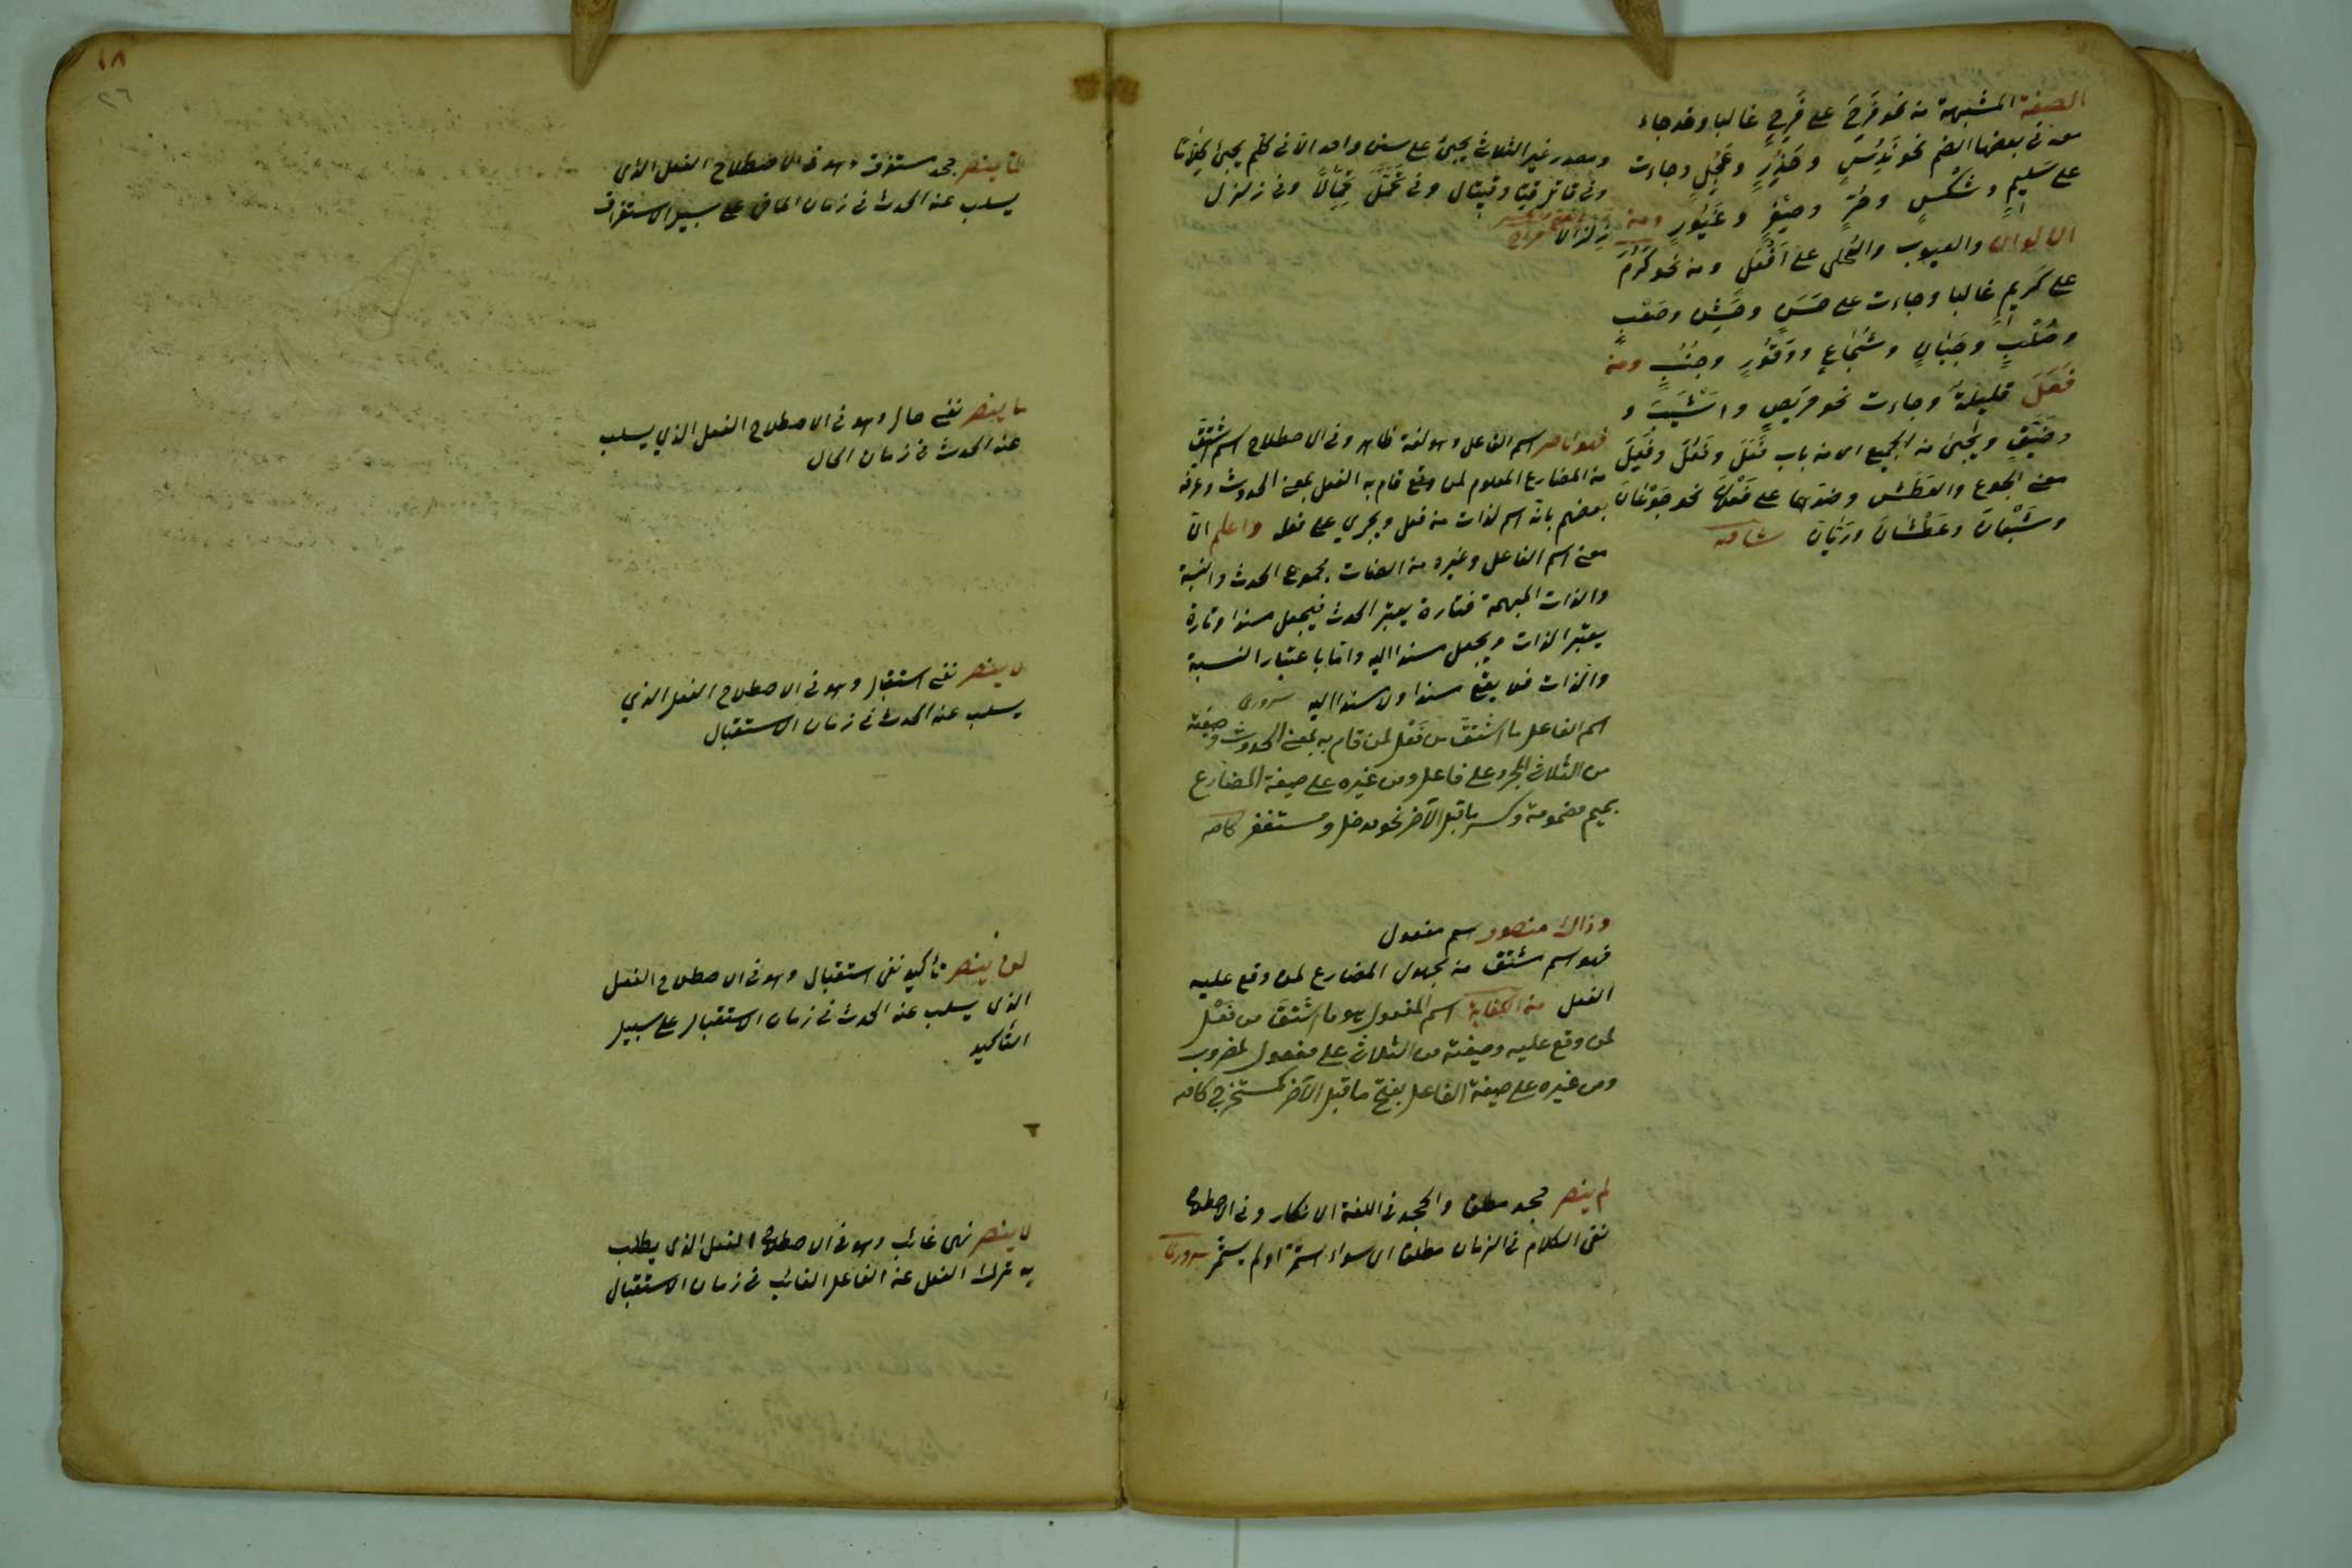 الصفة المشبهة من نحو فَرِحَ على فَرِحٍ غالبا وقد جاء
معه في بعضها الضم نحو نَدُسٍ وحَذُرٍ وعَجُلٍ وجاءت
على سَلِيمٍ وشَكْسٍ وحُرٍّ وصِفْرٍ وغَيُورٍ ومن
الالوان والعيوب والحلى على اَفْعَلَ ومن نحو كَرُمَ
على كَرِيمٍ غالبا وجاءت على حَسَنٍ وخَشِنٍ وصَعْبٍ
وصُلْبٍ وجَبَانٍ وشُجَاعٍ ووَقُورٍ وجُنُبٍ ومن
فَعَلَ قليلة وجاءت نحو حَرِيصٍ واَشْيَبَ و
وضَيِّقٍ ويجئ من الجميع اى من باب فَعَلَ وفَعُلَ وفَعِلَ
معنى الجوع والعطش وضدهما على فَعْلَانَ نحو جَوْعَانَ
وشَبْعَانَ وعَطْشَانَ ورَيَّانَ شافيه
ومصدر غير الثلاثى يجئ على سنن واحد الا فى كلّم يجئ كِلَّامًا
وفى قاتل قتالا وقيتال وفى تَحَمَّلَ تِحِمَّالًا وفى زلزل
زلزالا مراح
فهو ناصر اسم الفاعل وهو لغة ظاهر وفى الاصطلاح اسم اشتق
من المضارع المعلوم لمن وقع قام به الفعل بمعنى الحدوث وعرفه
بعضهم بانه اسم لذات من فعل ويجري على فعله واعلم ان
معنى اسم الفاعل وغيره من الصفات مجموع الحدث والنسبة
والذات المبهمة فتارة يعتبر الحدث فيجعل مسندا وتارة
يعتبر الذات ويجعل مسندا اليه واما باعتبار النسبة
والذات فلا يقع مسندا ولا مسندا اليه سرورى
اسم الفاعل ما اشتق من فعل لمن قام به بمعنى الحدوث وصيغته
من الثلاثى المجرد على فاعل ومن غيره على صيغة المضارع
بميم مضمومة وكسر ما قبل الآخر نحو مدخل ومستغفر كافيه
وذاك منصور اسم مفعول
فهو اسم مشتق من مجهول المضارع لمن وقع عليه
الفعل من الكفاية اسم المفعول هو ما اشتق من فعل
لمن وقع عليه وصيغته من الثلاثى على مفعول كمضروب
ومن غيره على صيغة الفاعل بفتح ما قبل الآخر كمستخرج كافيه
لم ينصر جحد مطلق والجحد فى اللغة الانكار وفى الاصطلاح
نفى الكلام فى الزمان مطلقا اى سواء استمر او لم يستمر سرورى
١٨
٢٦
لما ينصر جحد مستغرق وهو فى الاصطلاح الفعل الذى
يسلب عنه الحدث فى زمان الماضى على سبيل الاستغراق
ما ينصر نفى حال وهو فى الاصطلاح الفعل الذي يسلب
عنه الحدث فى زمان الحال
لا ينصر نفى استقبال وهو فى الاصطلاح الفعل الذي
يسلب عنه الحدث فى زمان الاستقبال
لن ينصر تأكيد نفى استقبال وهو فى الاصطلاح الفعل
الذى يسلب عنه الحدث فى زمان الاستقبال على سبيل
التأكيد
لا ينصر نهى غائب وهو فى الاصطلاح الفعل الذى يطلب
به ترك الفعل عن الفاعل الغائب فى زمان الاستقبال